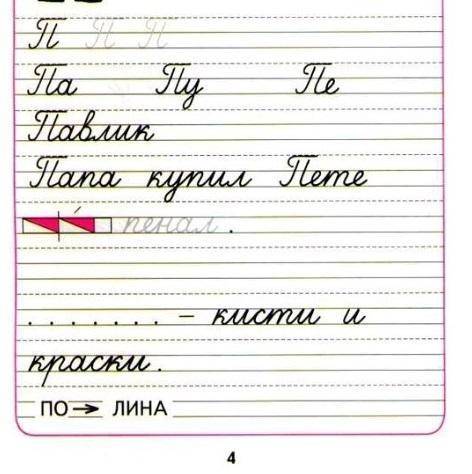 П П П
Па Пу Пе
Павлик
Папа купил Пете
пенал.
. . . . . . . – кисти и
краски.
ПО→ ЛИНА
4